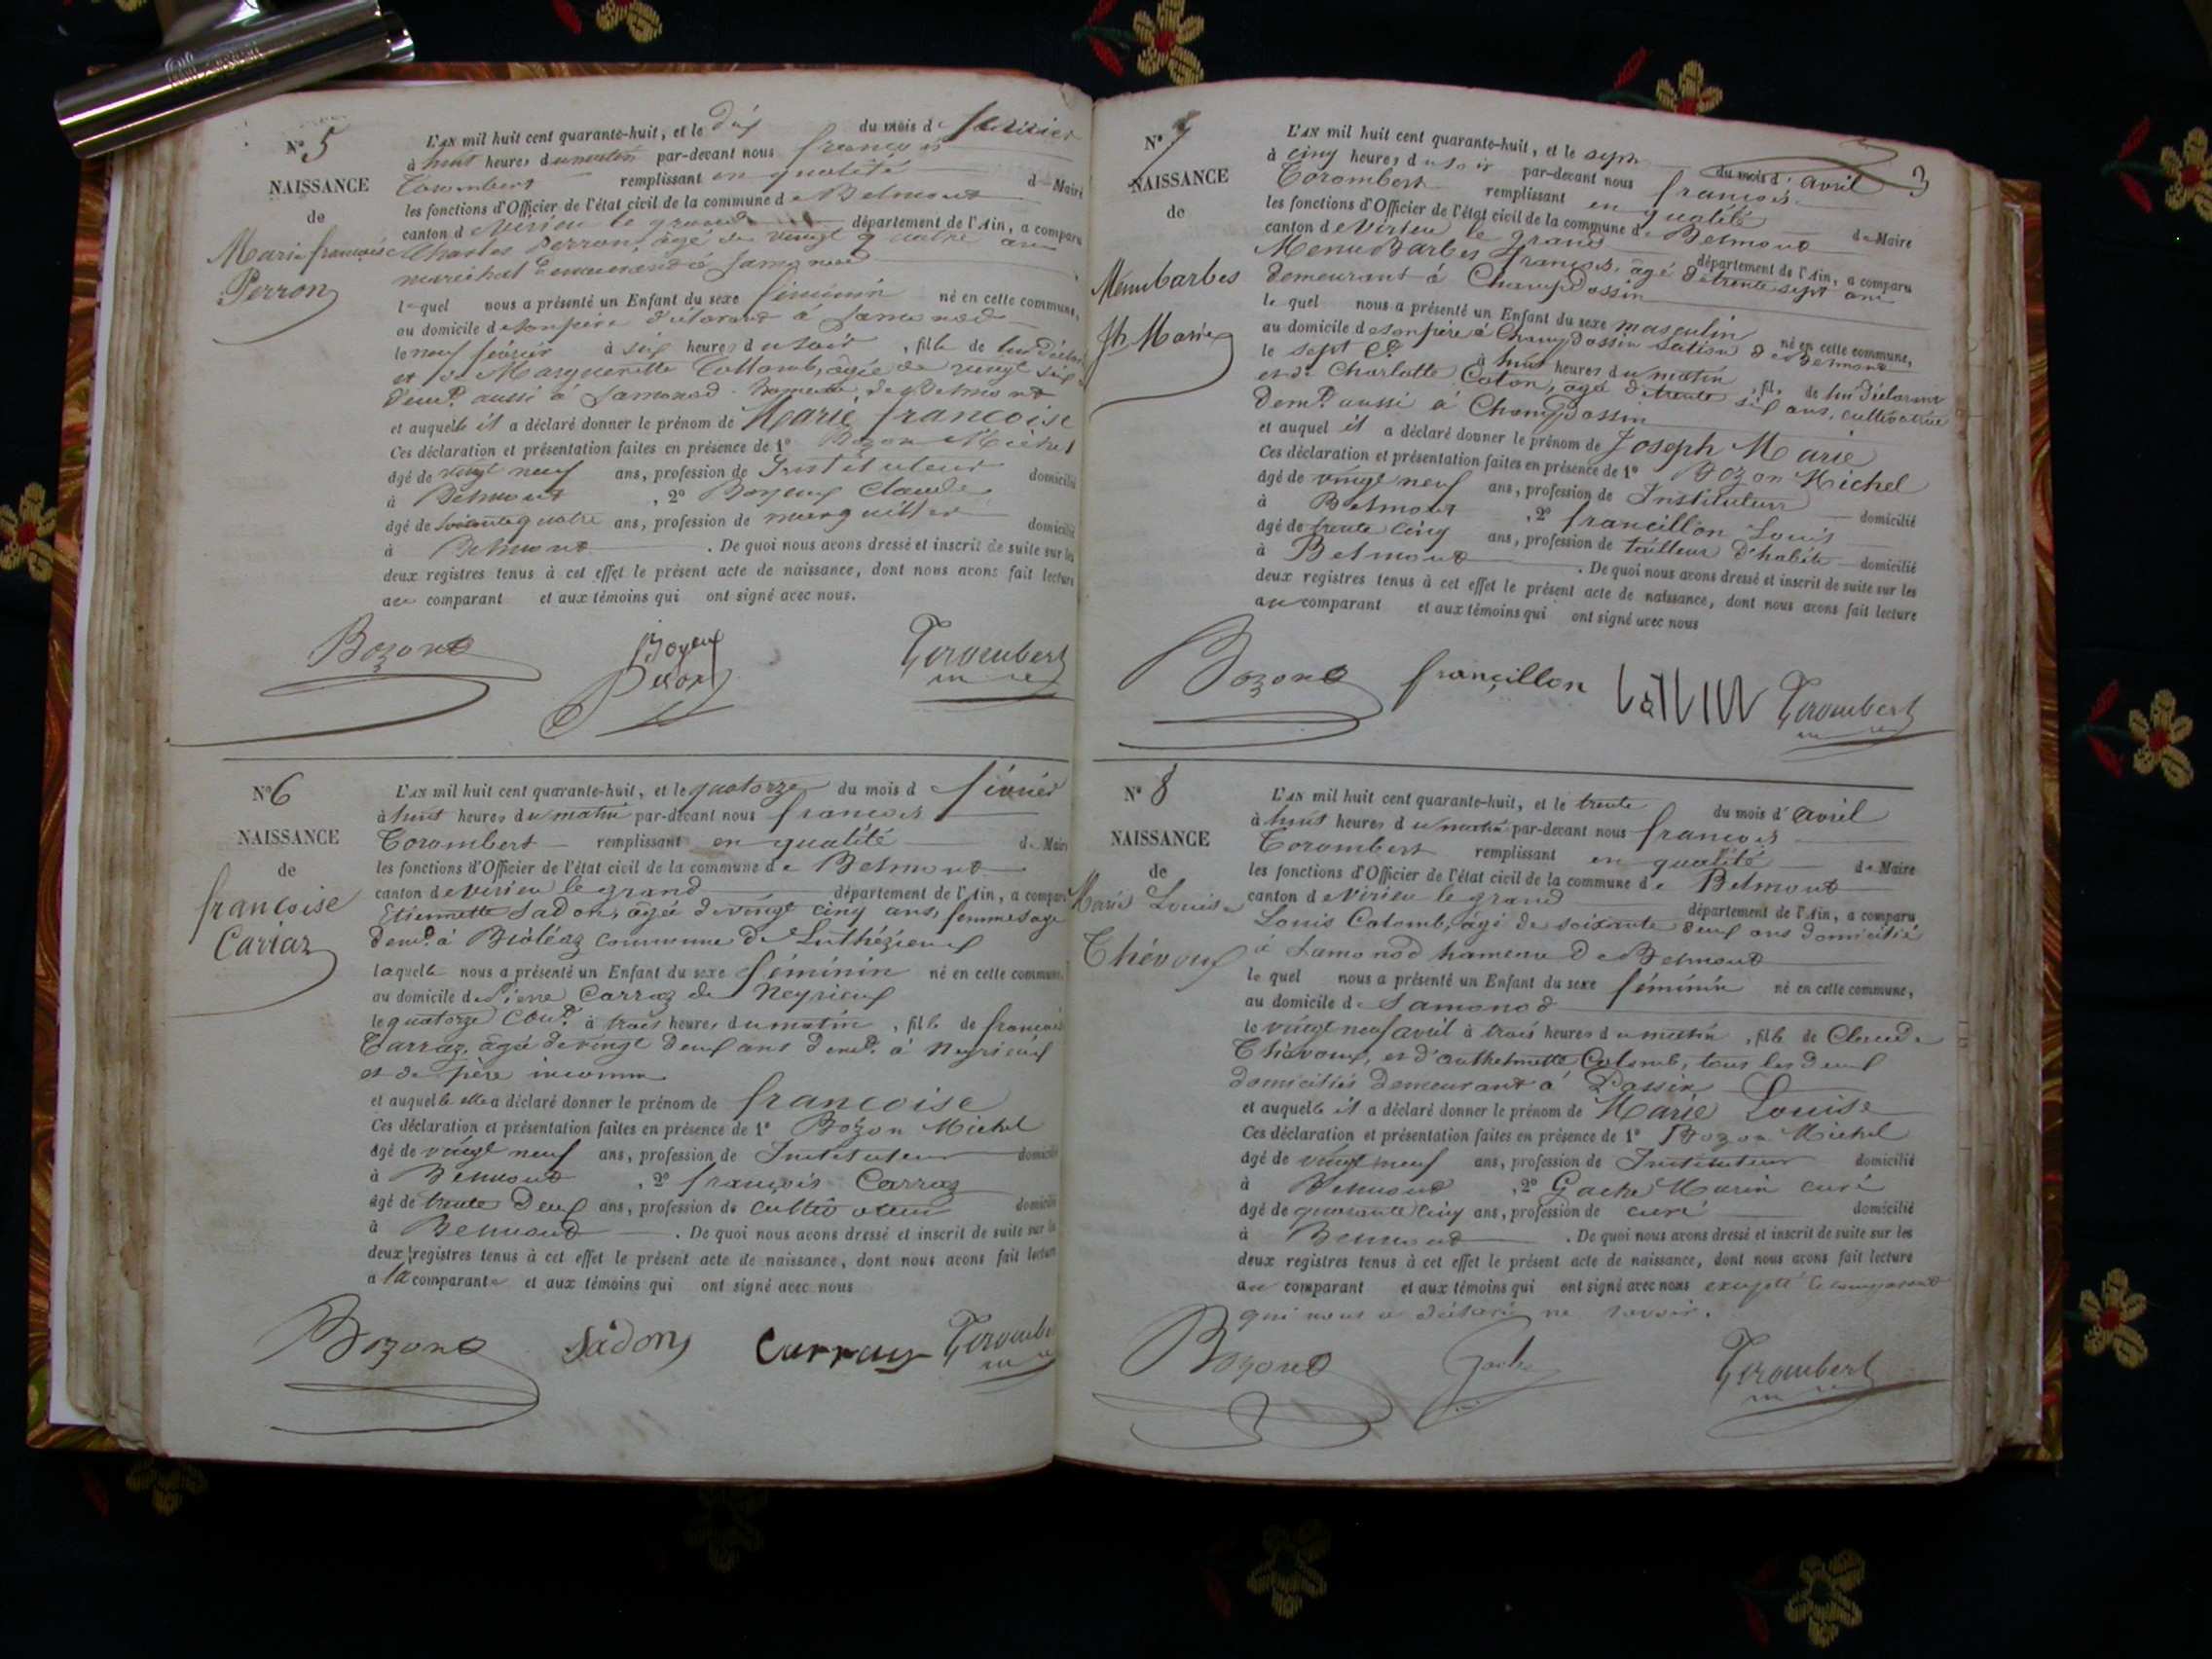 N° 5
NAISSANCE
de
Marie françoise
Perron
L'AN mil huit cent quarante-huit, et le dix du mois de février
à huit heures du matin par-devant nous françois
Corombert remplissant en qualité de Maire
les fonctions d'Officier de l'état civil de la commune de Belmont
canton de Virieu le grand département de l'Ain, a comparu
Charles Perron, âgé de vingt quatre ans
maréchal demeurant à Samonod
lequel nous a présenté un Enfant du sexe féminin né en cette commune,
au domicile de son père déclarant à Samonod
le neuf février à six heures du soir, fille de lui déclarant
et de Marguerite Collomb, âgée de vingt six
demt. aussi à Samonod hameau de Belmont
et auquelle il a déclaré donner le prénom de Marie françoise
Ces déclaration et présentation faites en présence de 1° Bozon Michel
âgé de vingt neuf ans, profession de Instituteur domicilié
à Belmont, 2° Boyeux Claude
âgé de soixante quatre ans, profession de marguillier domicilié
à Belmont. De quoi nous avons dressé et inscrit de suite sur les
deux registres tenus à cet effet le présent acte de naissance, dont nous avons fait lecture
au comparant et aux témoins qui ont signé avec nous.
Bozon Boyeux Corombert
Peron
N° 6
NAISSANCE
de
françoise
Carraz
L'AN mil huit cent quarante-huit, et le quatorze du mois de février
à huit heures du matin par-devant nous françois
Corombert remplissant en qualité de Maire
les fonctions d'Officier de l'état civil de la commune de Belmont
canton de Virieu le grand département de l'Ain, a comparu
Etiennette Sadon, âgée de vingt cinq ans, femme sage
demt. à Bioléaz commune de Luthézieux
laquelle nous a présenté un Enfant du sexe féminin né en cette commune
au domicile de Pierre Carraz de Neyrieux
le quatorze cout. à trois heures du matin, fille de françoise
Carraz, âgée de vingt deux ans demt. à Neyrieux
et de père inconnu
et auquelle elle a déclaré donner le prénom de françoise
Ces déclaration et présentation faites en présence de 1° Bozon Michel
âgé de vingt neuf ans, profession de Instituteur domicilié
à Belmont, 2° françois Carraz
âgé de trente deux ans, profession de cultivateur domicilié
à Belmont. De quoi nous avons dressé et inscrit de suite sur les
deux registres tenus à cet effet le présent acte de naissance, dont nous avons fait lecture
a la comparante et aux témoins qui ont signé avec nous
Bozon Sadon Carraz Corombert
3
N° 7
NAISSANCE
de
Ménubarbes
Jh Marie
L'AN mil huit cent quarante-huit, et le sept du mois d'avril
à cinq heures du soir par-devant nous françois
Corombert remplissant en qualité de Maire
les fonctions d'Officier de l'état civil de la commune de Belmont
canton de Virieu le grand département de l'Ain, a comparu
Menu Barbes françois, âgé de trente sept ans
demeurant à Champdossin
lequel nous a présenté un Enfant du sexe masculin né en cette commune,
au domicile de son père à Champdossin section de Belmont
le sept ct. à huit heures du matin, fils de lui déclarant
et de Charlotte Caton, âgé de trente six ans, cultivatrice
demt. aussi à Champdossin
et auquel il a déclaré donner le prénom de Joseph Marie
Ces déclaration et présentation faites en présence de 1° Bozon Michel
âgé de vingt neuf ans, profession de Instituteur domicilié
à Belmont, 2° francillon Louis
âgé de trente cinq ans, profession de tailleur d'habits domicilié
à Belmont. De quoi nous avons dressé et inscrit de suite sur les
deux registres tenus à cet effet le présent acte de naissance, dont nous avons fait lecture
au comparant et aux témoins qui ont signé avec nous
Bozon françillon Corombert
N° 8
NAISSANCE
de
Marie Louise
Thévoux
L'AN mil huit cent quarante-huit, et le trente du mois d'avril
à huit heures du matin par-devant nous françois
Corombert remplissant en qualité de Maire
les fonctions d'Officier de l'état civil de la commune de Belmont
canton de Virieu le grand département de l'Ain, a comparu
Louis Colomb, âgé de soixante deux ans domicilié
à Samonod hameau de Belmont
lequel nous a présenté un Enfant du sexe féminin né en cette commune,
au domicile de Samonod
le vingt neuf avril à trois heures du matin, fille de Claude
Thévoux, et d'Anthelmette Colomb, tous les deux
domiciliés demeurant à Possin
et auquelle il a déclaré donner le prénom de Marie Louise
Ces déclaration et présentation faites en présence de 1° Bozon Michel
âgé de vingt neuf ans, profession de Instituteur domicilié
à Belmont, 2° Gache Marin curé
âgé de quarante cinq ans, profession de curé domicilié
à Belmont. De quoi nous avons dressé et inscrit de suite sur les
deux registres tenus à cet effet le présent acte de naissance, dont nous avons fait lecture
au comparant et aux témoins qui ont signé avec nous excepté le comparant
qui nous a déclaré ne savoir.
Bozon Gache Corombert